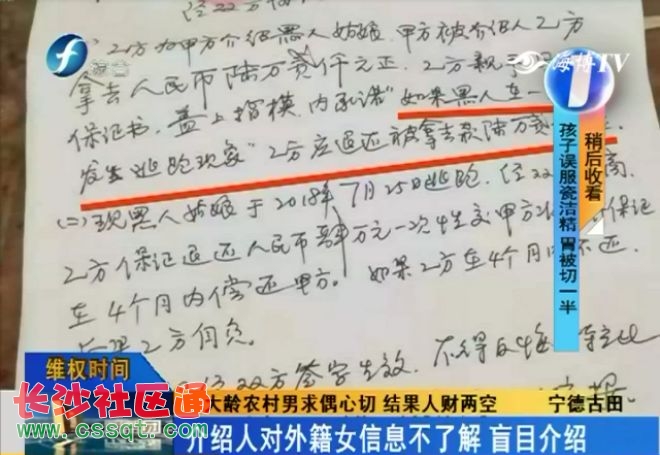 乙方为甲方介绍黑人姑娘,甲方被介绍人乙方
拿去人民币陆万贰仟元正,乙方亲
保证书,盖上指模,内承诺"如果黑人在一
发生逃跑现象"乙方应退还被拿去款陆万贰
(二)现黑人姑娘于2018年7月25日逃跑,经双
乙方保证退还人民币肆万元一次性交甲方 保证
在4个月内偿还甲方。如果乙方在4个月内不还
后果乙方负
双方签字生效,不得反悔
综合
海博TV
1
稍后收看
孩子误服瓷洁精 胃被切一半
维权时间
大龄农村男求偶心切 结果人财两空
宁德古田
介绍人对外籍女信息不了解 盲目介绍
长沙社区通
www.cssqt.com